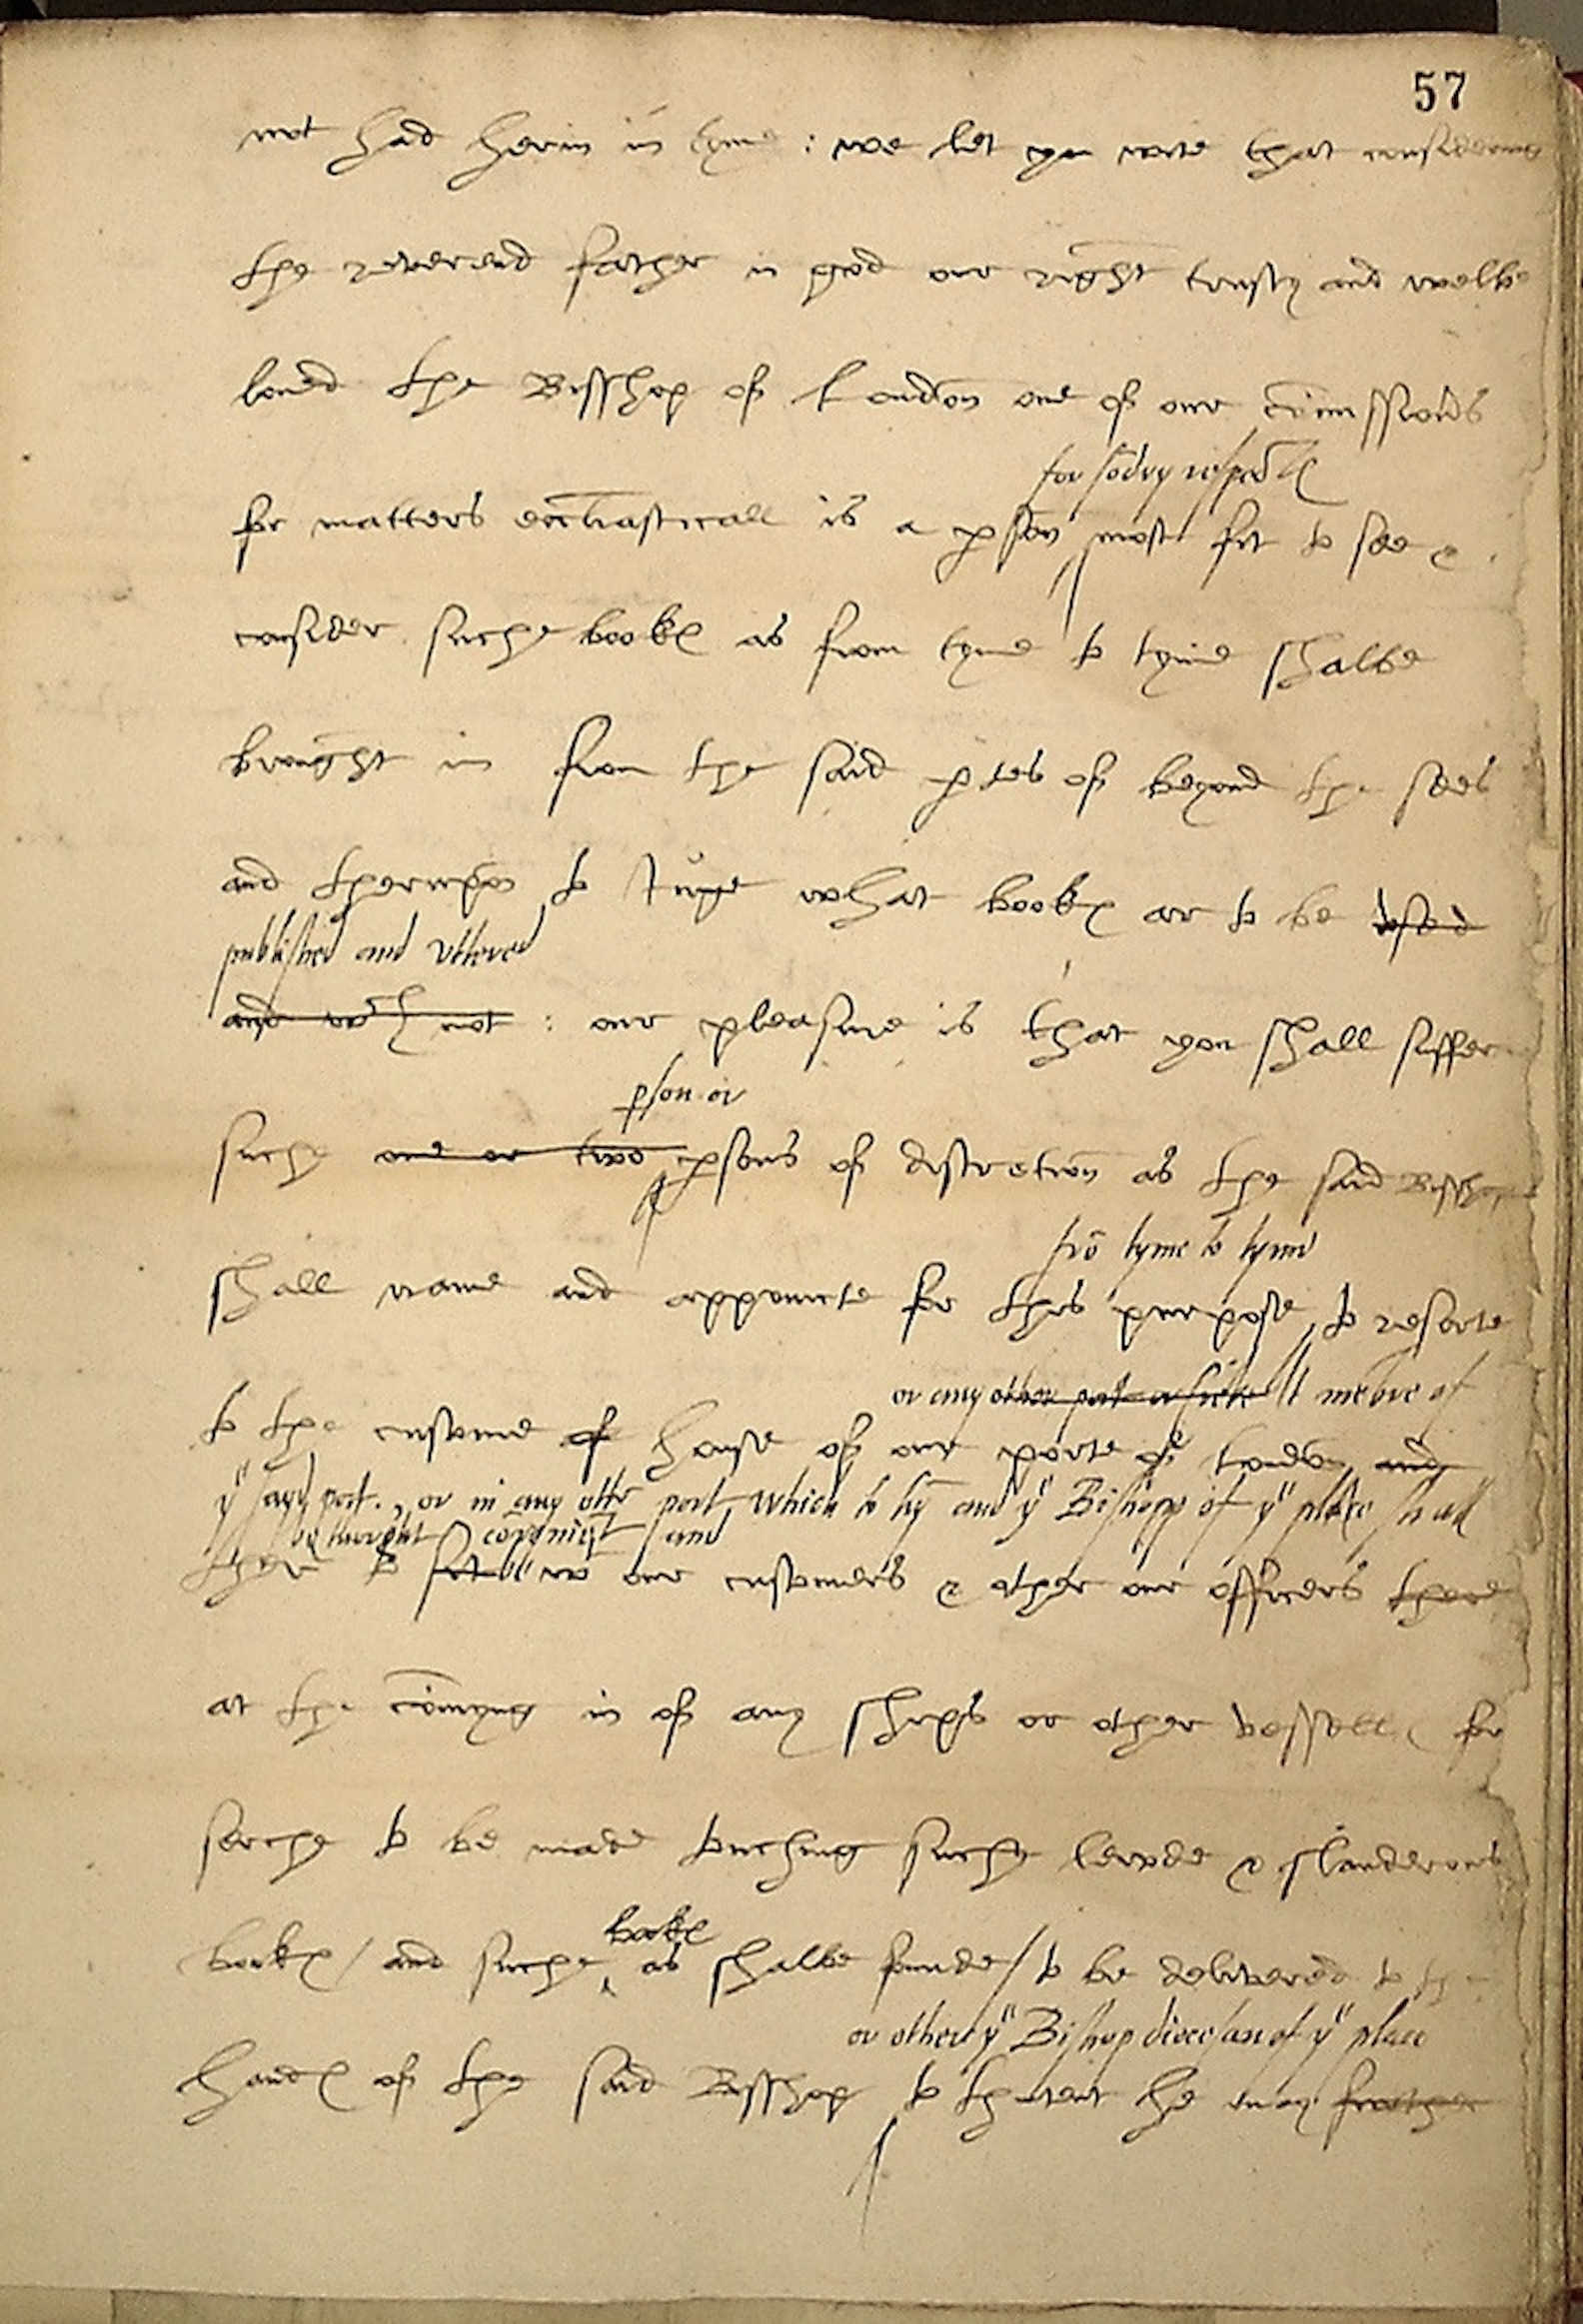 57
not had herin in tyme : we let you wite that considering
the reverend father in god our right trusty and welbe
loued the Bisshop of London one of our cōmissioners
for sōdry respectℯ
for matters eccliasticall is a pson most fit to see &
consider suche bookℯ as from tyme to tyme shalbe
brought in from the said ptes of beyond the sees
and therupon to Juge what bookℯ ar to be vsed
published and vttered
and wch not : our pleasure is that you shall suffer
pson or
suche one or two psons of discretion as the said Bisshop
frō tyme to tyme
shall name and appointe for this purpose to resorte
or any other port or creke mēbre of
to the custome of house of our porte of London and
yͤ sayd port , or in any other port which to hȳ and yͤ Bishopp of yͤ place shall
be thought cōveniēt and
there to our customers & other our officers there
at the cōmyng in of any shippes or other vessellℯ for
serche to be made touching suche lewde & slanderous
bookℯ
bookℯ / and suche as shalbe founde / to be delivered to the
or other yͤ Bishop diocesan of yͤ place
handℯ of the said Bisshop to thintent he may further